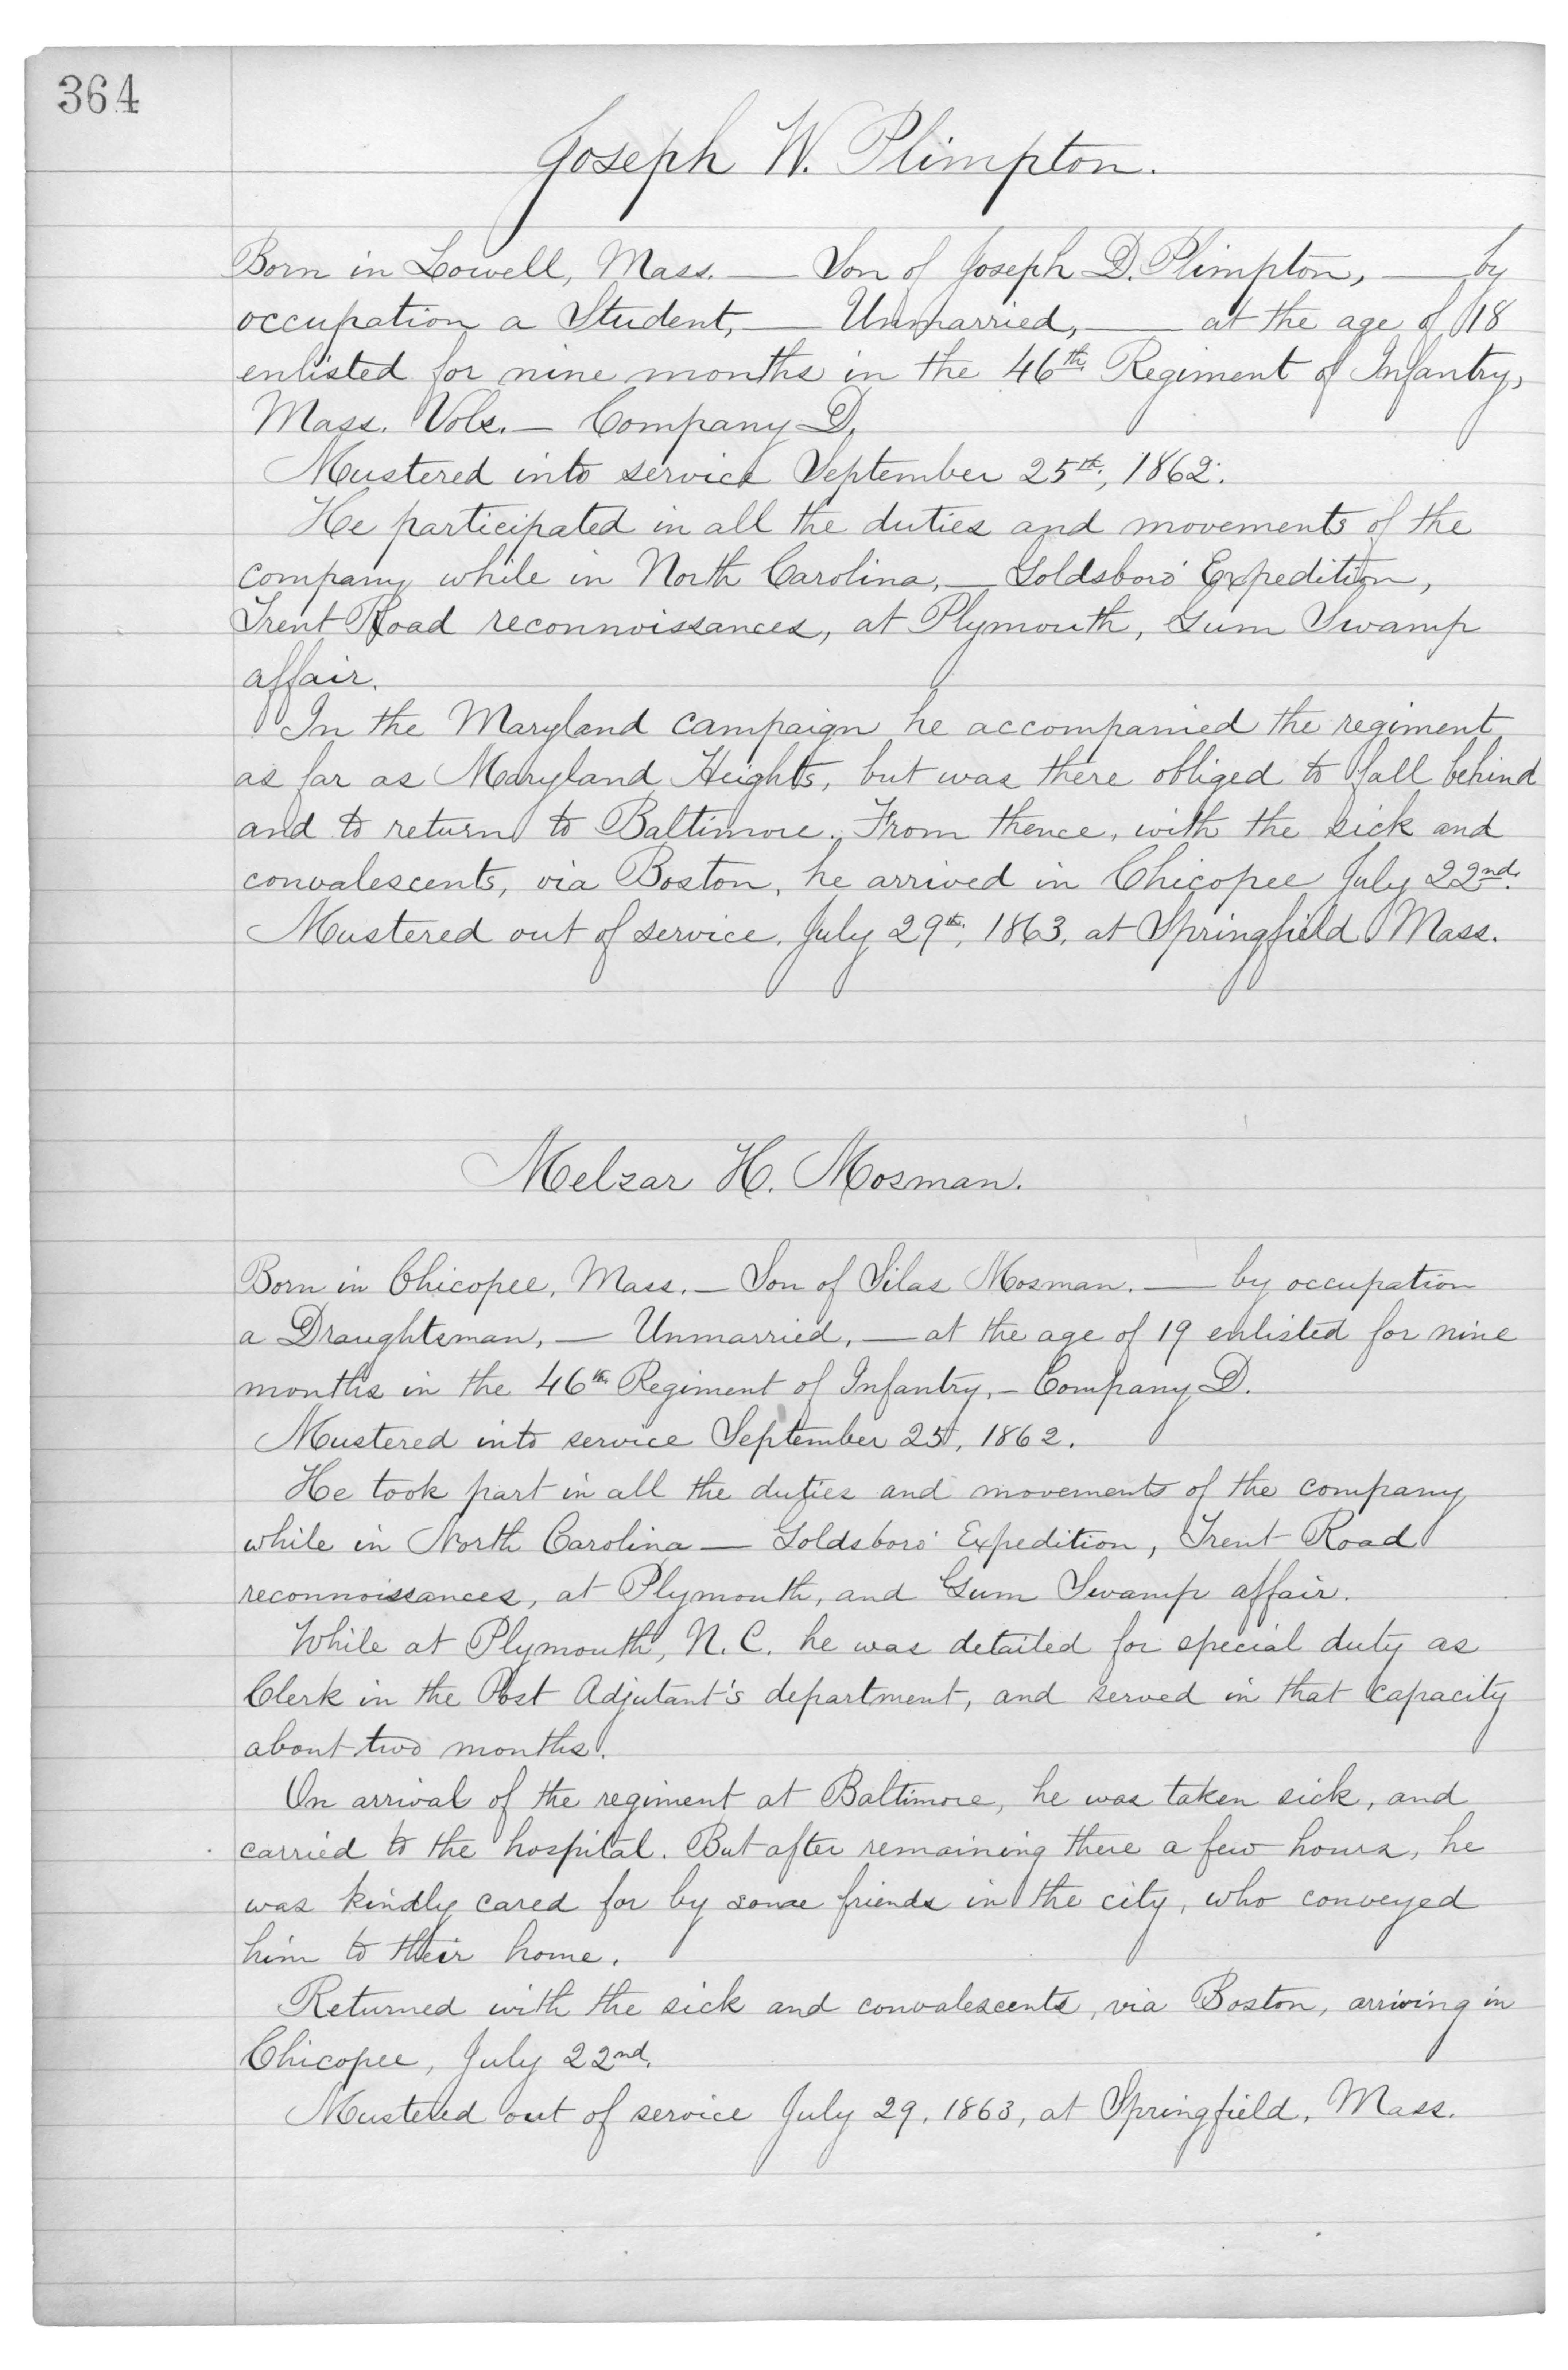 364
Joseph W. Plimpton.
Born in Lowell, Mass. — Son of Joseph D. Plimpton, — by
occupation a Student, — Unmarried, — at the age of 18
enlisted for nine months in the 46th Regiment of Infantry,
Mass. Vols. — Company D.
Mustered into service September 25th, 1862.
He participated in all the duties and movements of the
company while in North Carolina, — Goldsboro' Expedition,
Trent Road reconnoissances, at Plymouth, Gum Swamp
affair.
In the Maryland campaign he accompanied the regiment
as far as Maryland Heights, but was there obliged to fall behind
and to return to Baltimore. From thence, with the sick and
convalescents, via Boston, he arrived in Chicopee July 22nd.
Mustered out of service, July 29th, 1863, at Springfield Mass.
Melzar H. Mosman.
Born in Chicopee, Mass. — Son of Silas Mosman. — by occupation
a Draughtsman, — Unmarried, — at the age of 19 enlisted for nine
months in the 46th Regiment of Infantry, — Company D.
Mustered into service September 25, 1862.
He took part in all the duties and movements of the company
while in North Carolina — Goldsboro' Expedition, Trent Road
reconnoissances, at Plymouth, and Gum Swamp affair.
While at Plymouth, N.C. he was detailed for special duty as
Clerk in the Post Adjutant's department, and served in that capacity
about two months.
On arrival of the regiment at Baltimore, he was taken sick, and
carried to the hospital. But after remaining there a few hours, he
was kindly cared for by some friends in the city, who conveyed
him to their home.
Returned with the sick and convalescents, via Boston, arriving in
Chicopee, July 22nd.
Mustered out of service July 29, 1863, at Springfield, Mass.